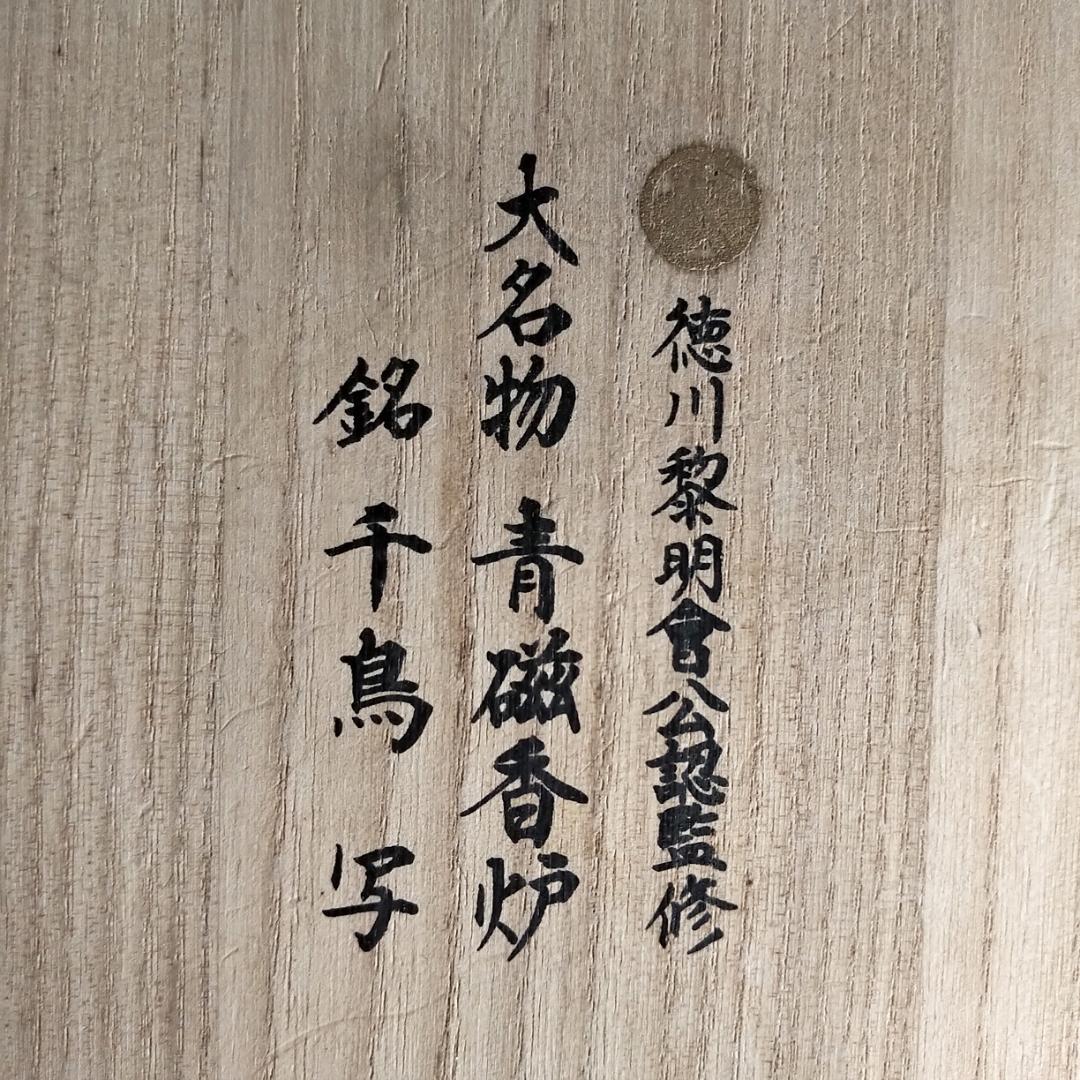 徳川黎明會公認監修
大名物 青磁香炉
銘 千鳥 写